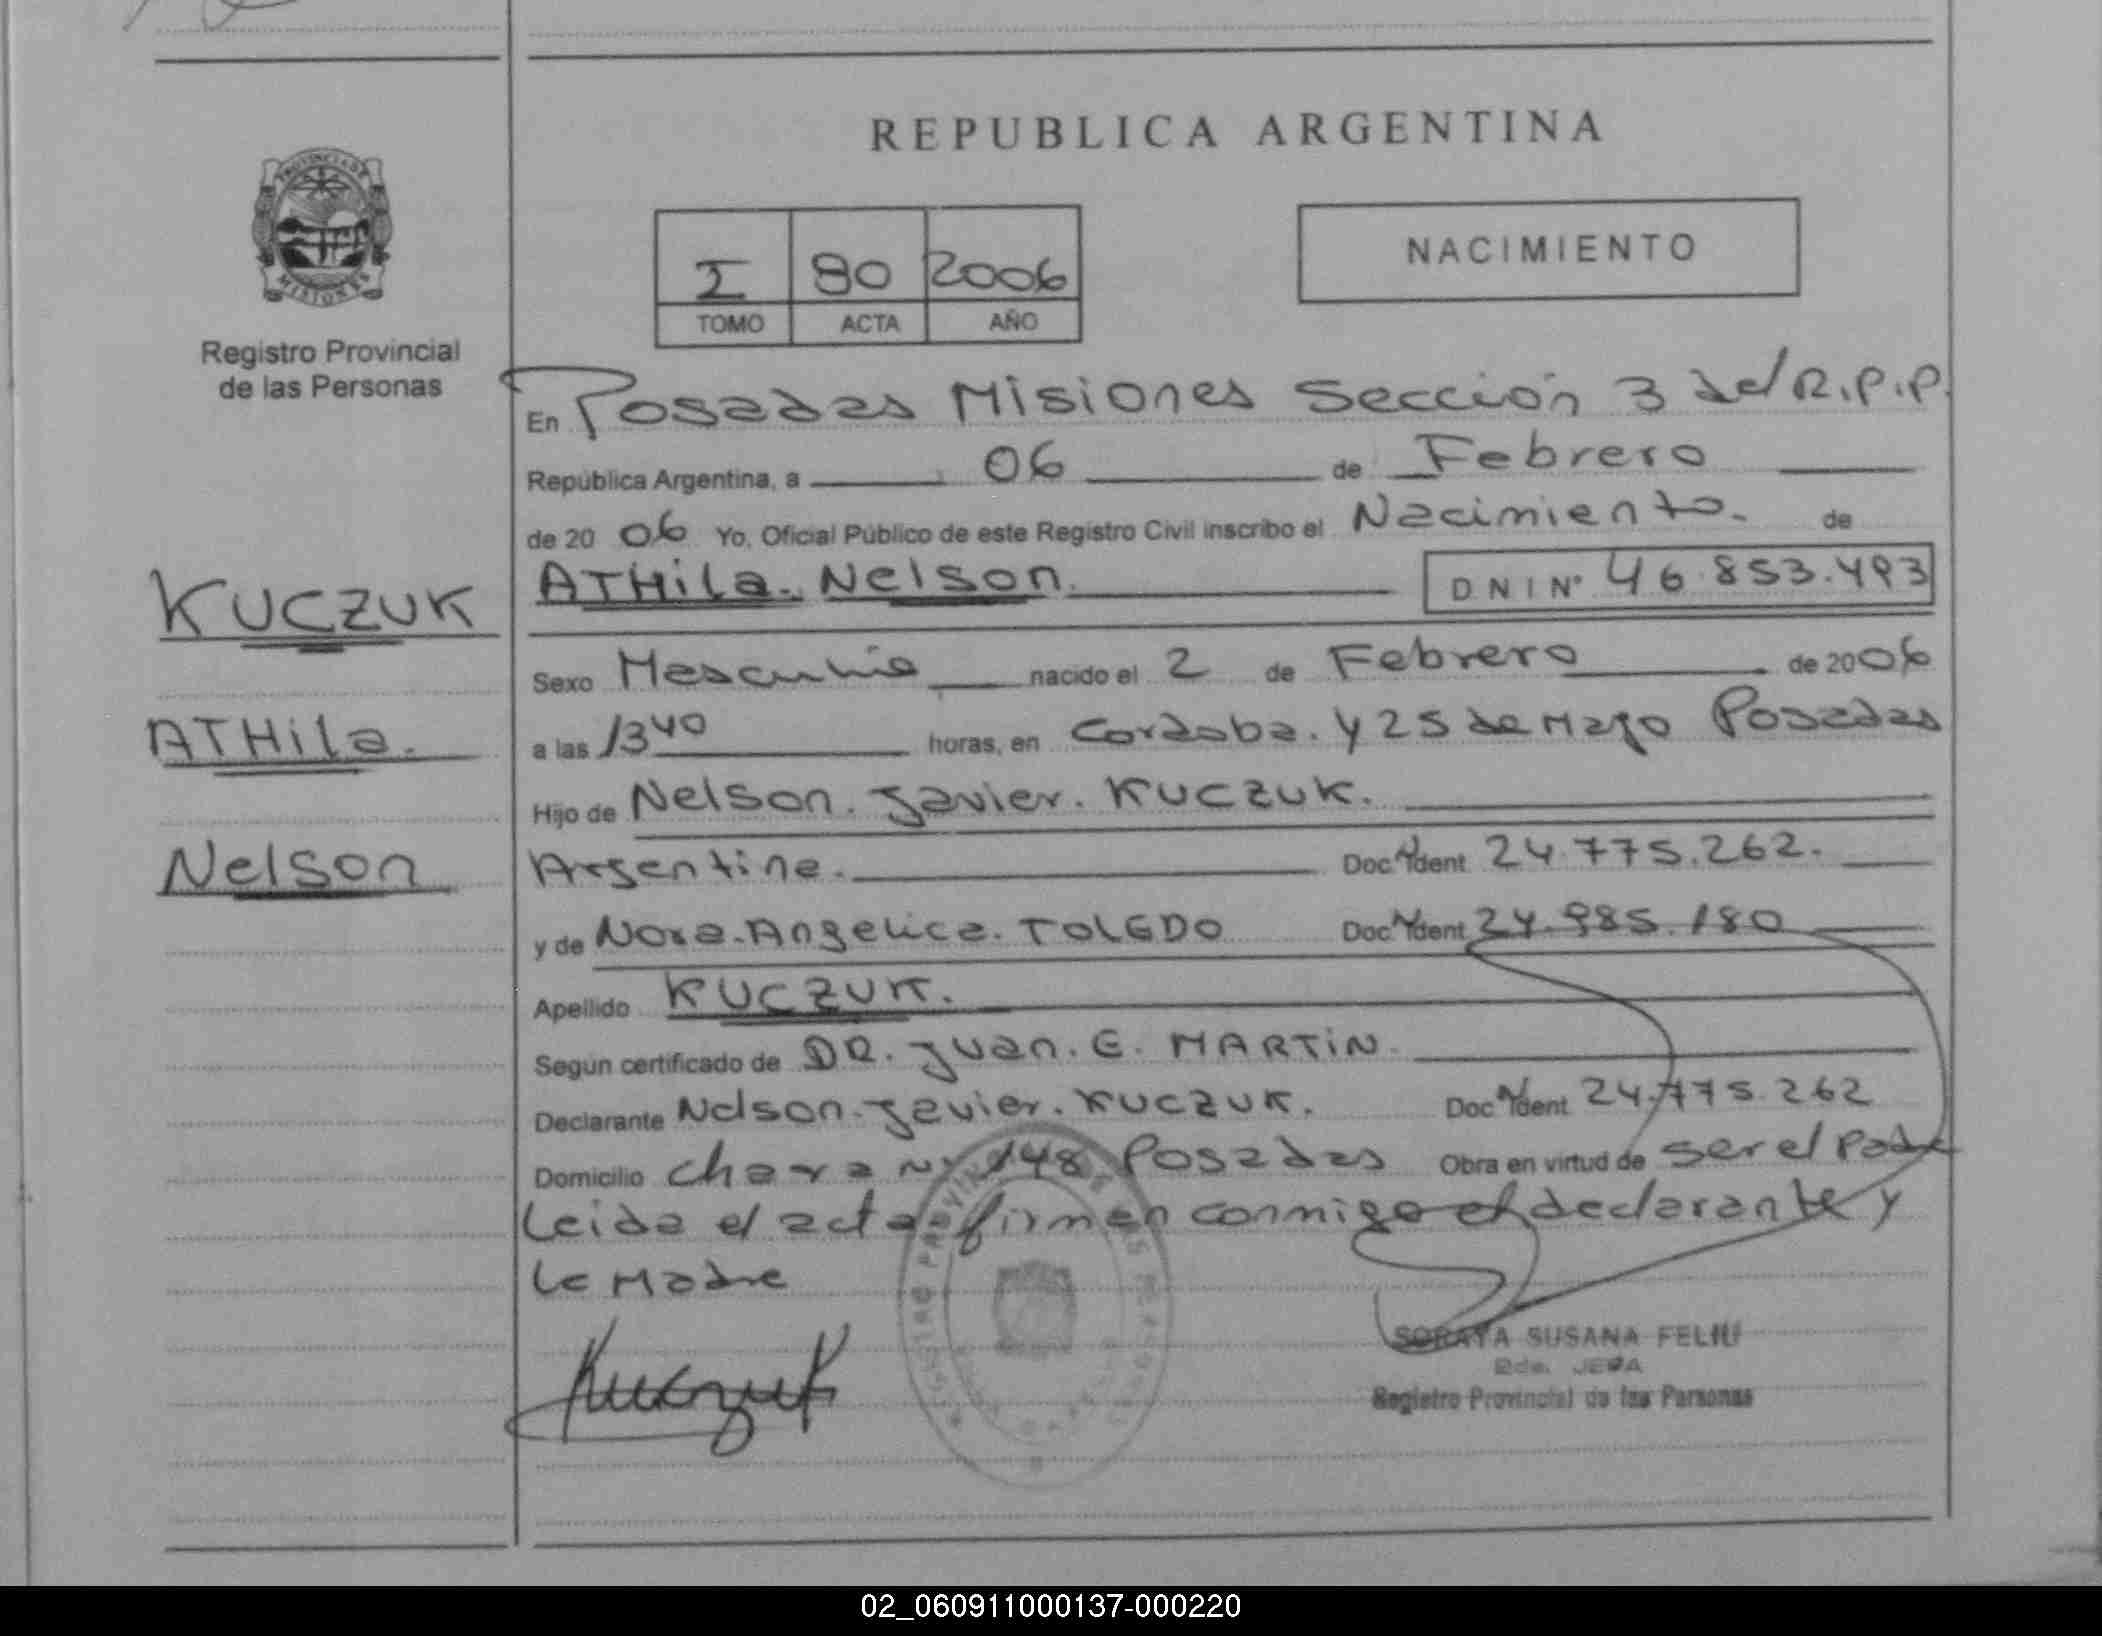 REPUBLICA ARGENTINA
PROVINCIA DE MISIONES
Registro Provincial
de las Personas
I 80 2006
TOMO ACTA AÑO
NACIMIENTO
En Posadas Misiones Sección 3 del R.P.P.
República Argentina, a 06 de Febrero
de 2006 Yo, Oficial Público de este Registro Civil inscribo el Nacimiento. de
KUCZUK
ATHila. Nelson. DNI Nº 46.853.493
Sexo Masculino nacido el 2 de Febrero de 2006
ATHila.
a las 13 40 horas, en Cordoba. y 25 de Mayo Posadas
Hijo de Nelson. Javier. KUCZUK.
Nelson
Argentina. Doc. Ident 24.775.262.
y de Nora. Angelica. TOLEDO Doc. Ident 24.985.180
Apellido KUCZUK.
Según certificado de DR. Juan. E. MARTIN.
Declarante Nelson. Javier. KUCZUK. Doc. Ident 24.775.262
Domicilio chacra Nº 148 Posadas Obra en virtud de ser el Padre
Leida el acta firman conmigo el declarante y
la Madre
Kuczuk
SORAYA SUSANA FELIU
2da. JEFA
Registro Provincial de las Personas
REGISTRO PROVINCIAL DE LAS PERSONAS
02_060911000137-000220